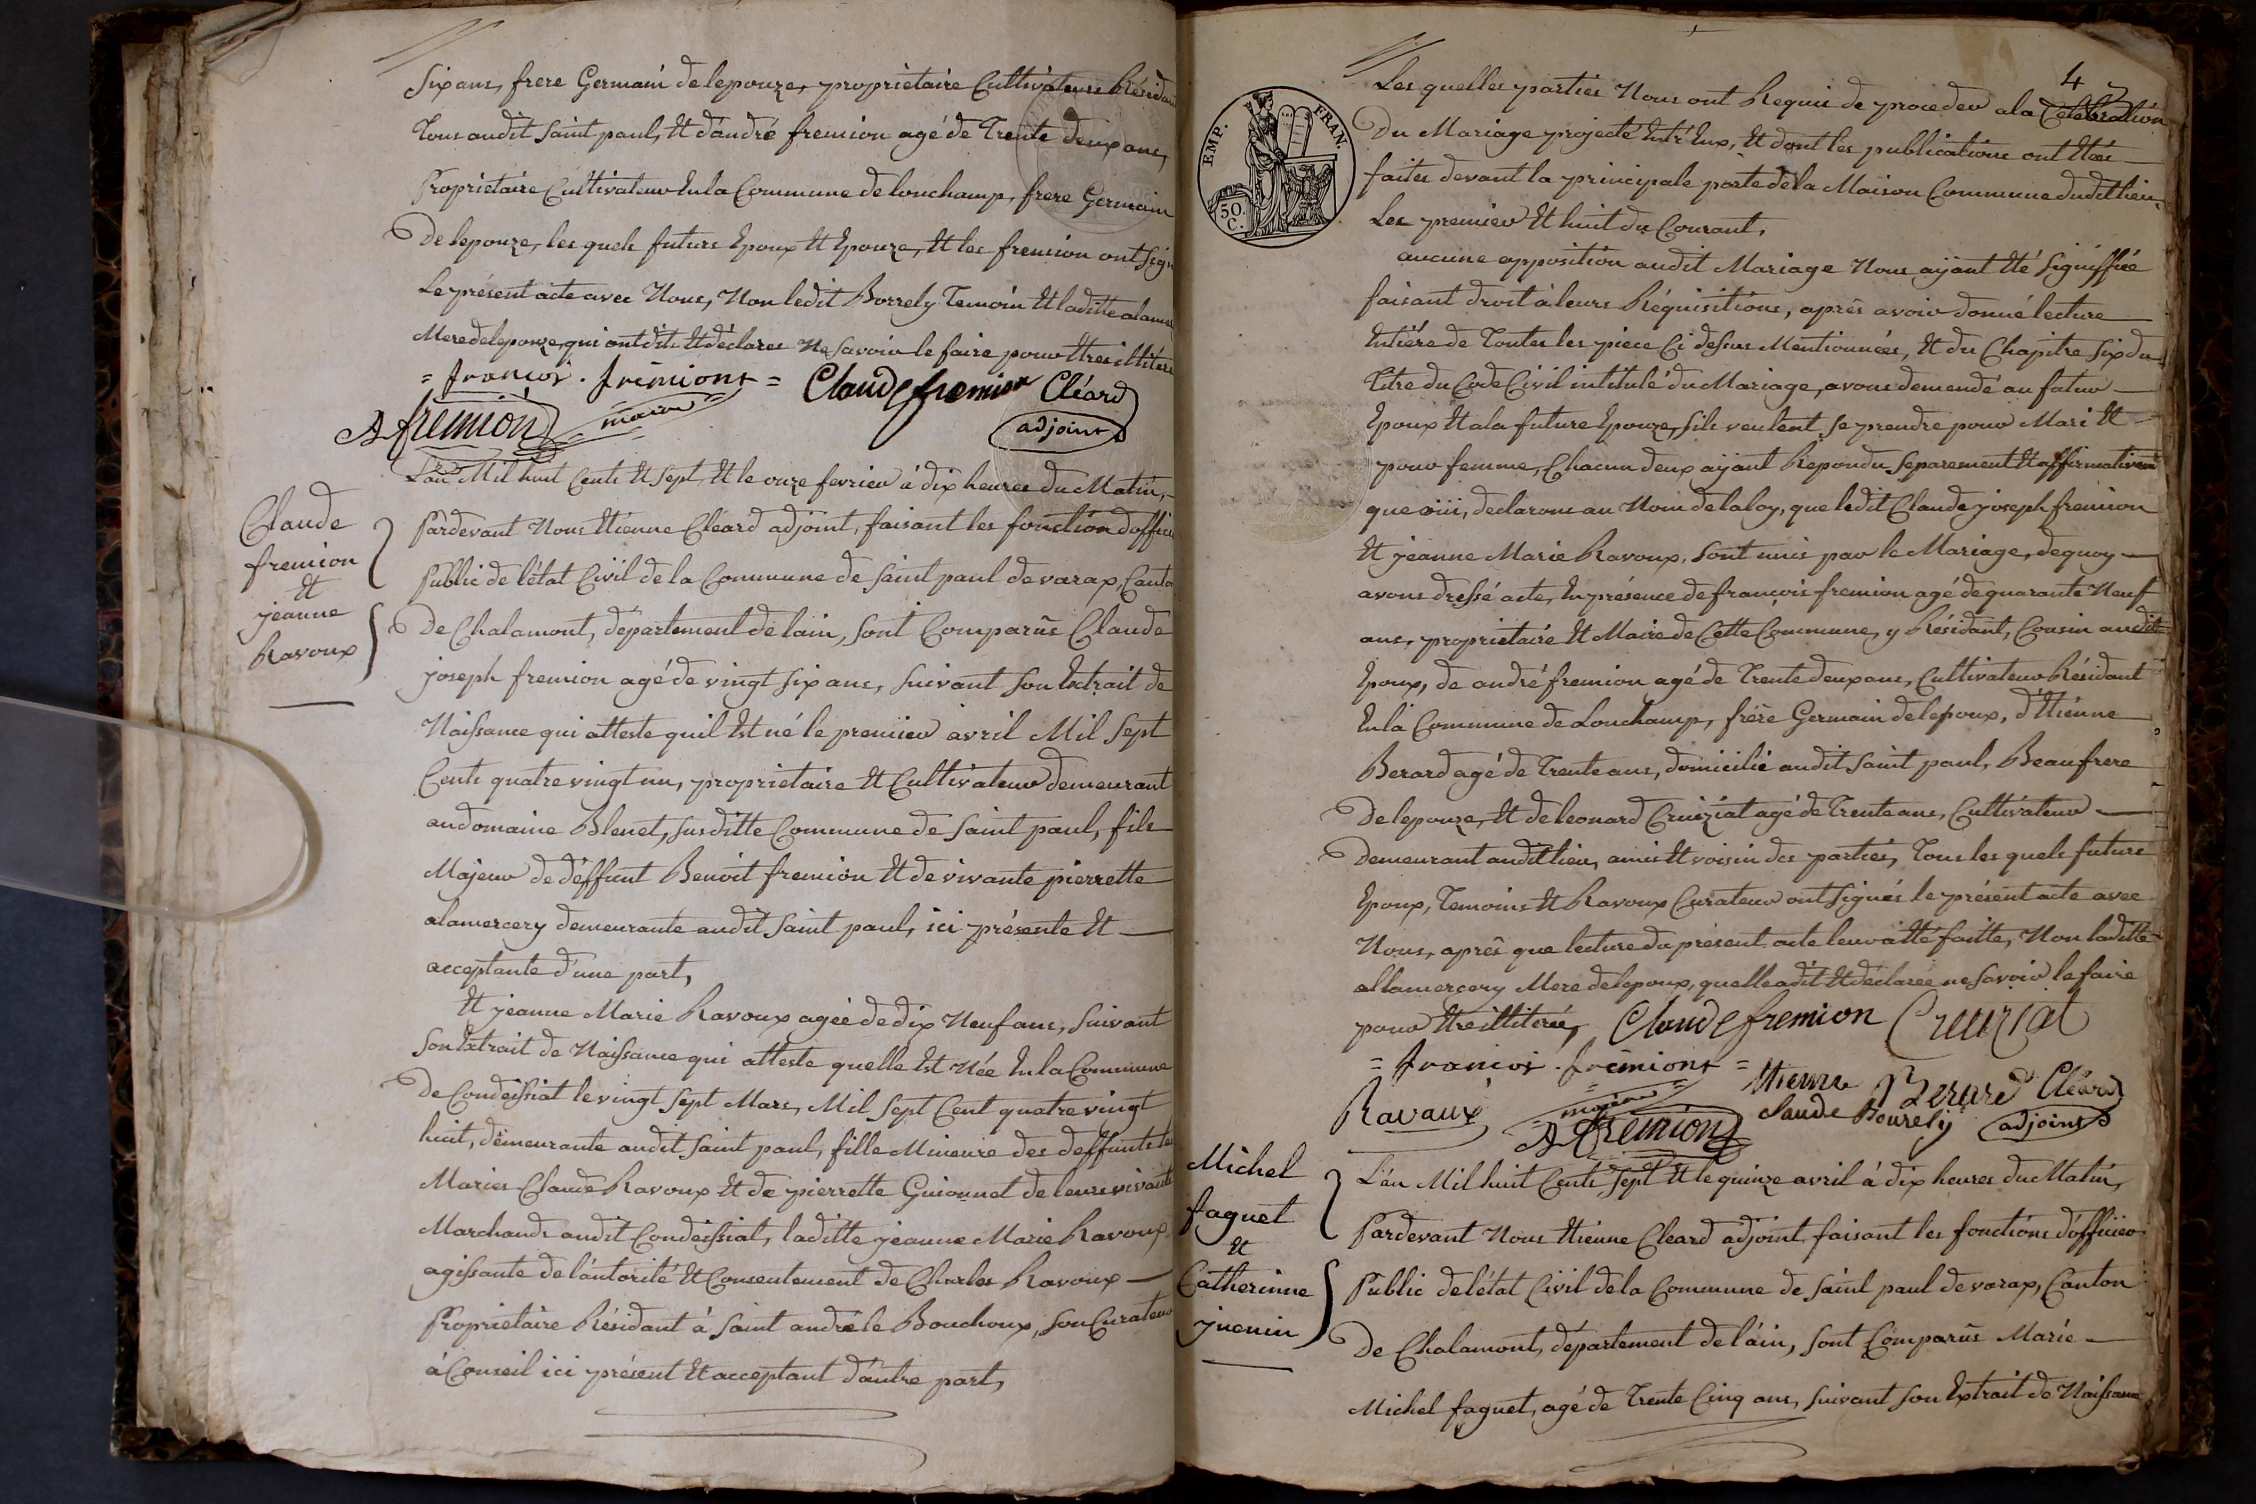 Six ans, frere Germain de lepouze, proprietaire Cultivateurs Résidant
Tous audit Saint paul, Et d'andré fremion agé de Trente deux ans,
Proprietaire Cultivateur En la Commune de lonchamp, frere Germain
De lepouze, les quels futurs Epoux Et Epouze, Et les fremion ont Sign
Le présent acte avec Nous, Non ledit Borrely Temoin Et laditte alamer
Mere de lepouze, qui ont dit Et declarer Ne Savoir le faire pour Etres illitére
= francois . fremiont = Claude fremion Cléard
A fremion maire adjoint
L'an Mil huit Cents Et Sept Et le onze fevrier à dix heures du Matin,
Claude
fremion
Et
jeanne
Ravoux
Pardevant Nous Etienne Cleard adjoint, faisant les fonction d'officie
Public de l'état Civil de la Commune de Saint paul de varax, Canto
De Chalamont, département de lain, Sont Comparûs Claude
joseph fremion agé de vingt Six ans, Suivant Son Extrait de
Naissance qui atteste quil Est né le premier avril Mil Sept
Cents quatre vingt un, proprietaire Et Cultivateur demeurant
au domaine Blenet, Susditte Commune de Saint paul, fils
Majeur de déffunt Benoit fremion Et de vivante pierrette
alamercery demeurante audit Saint paul, ici présente Et
acceptante d'une part,
Et jeanne Marie Ravoux agée de dix Neuf ans, Suivant
Son Extrait de Naissance qui atteste quelle Est Née En la Commune
De Condeissiat le vingt Sept Mars, Mil Sept Cent quatre vingt
huit, demeurante audit Saint paul, fille Mineure des deffunts
Maries Claude Ravoux Et de pierrette Guionnet de leurs vivants
Marchands audit Condeissiat, laditte jeanne Marie Ravoux
agissante de l'autorité Et Consentement de Charles Ravoux
Proprietaire Résidant à Saint andré le Bouchoux, Son Curateur
à Conseil ici présent Et acceptant d'autre part,
4
EMP. FRAN.
50. C.
Les quelles parties Nous ont Requis de proceder a la Celebration
Du Mariage projetté Entr'Eux, Et dont les publications ont Etées
faites devant la principale porte de la Maison Commune dudit lieu,
Les premier Et huit du Courant,
aucune opposition audit Mariage Nous ayant Eté Signiffiée
faisant droit à leurs Réquisitions, après avoir donné lecture
Entière de Toutes les piece Ci dessus Mentionnées, Et du Chapitre Six du
Titre du Code Civil intitulé du Mariage, avons demendé au futur
Epoux Et a la future Epouze, Sils veulent Se prendre pour Mari Et
pour femme, Chacun deux ayant Repondu Separement Et affirmativemt
que oui, declarons au Nom de la loy, que ledit Claude joseph fremion
Et jeanne Marie Ravoux, Sont unis par le Mariage, dequoy
avons dressé acte, En présence de françois fremion agé de quarante Neuf
ans, proprietaire Et Maire de Cette Commune, y Résidant, Cousin audit
Epoux, de andré fremion agé de Trente deux ans, Cultivateur Résidant
En la Commune de Lonchamp, frère Germain de lepoux, d'Etienne
Berard agé de Trente ans, domicilié audit Saint paul, Beaufrere
De lepouze, Et de leonard Cruiziat agé de Trente ans, Cultivateur
Demeurant audit lieu, amis Et voisin des parties, Tous les quels futurs
Epoux, Temoins Et Ravoux Curateur ont Signés le présent acte avec
Nous, après que lecture du présent acte leur a Eté faitte, Non laditte
allamercery Mere de lepoux, quelle a dit Et déclarée ne Savoir le faire
pour Etre illiterée, Claude fremion Creuziat
= francois . fremiont = Etienne Berard Cléard
Ravaux maire Claude Bourely adjoint
A fremion
Michel
faguet
Et
Catherinne
juenin
L'an Mil huit Cents Sept Et le quinze avril à dix heures du Matin,
Pardevant Nous Etienne Cleard adjoint faisant les fonctions d'officier
Public de l'état Civil de la Commune de Saint paul de varax, Canton
De Chalamont, département de l'ain, Sont Comparûs Marie
Michel faguet, agé de Trente Cinq ans, Suivant Son Extrait de Naissance